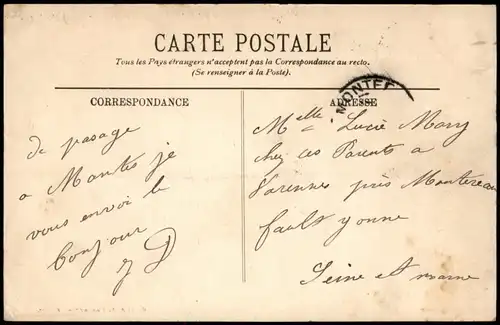 CARTE POSTALE
Tous les Pays étrangers n'acceptent pas la Correspondance au recto.
(Se renseigner à la Poste).
CORRESPONDANCE
de pasage
a Mantes je
vous envoi le
bonjour
MONTER
ADRESSE
Melle Lucie Mary
chez ces Parents a
Varennes près Montereau
fault yonne
Seine et marne